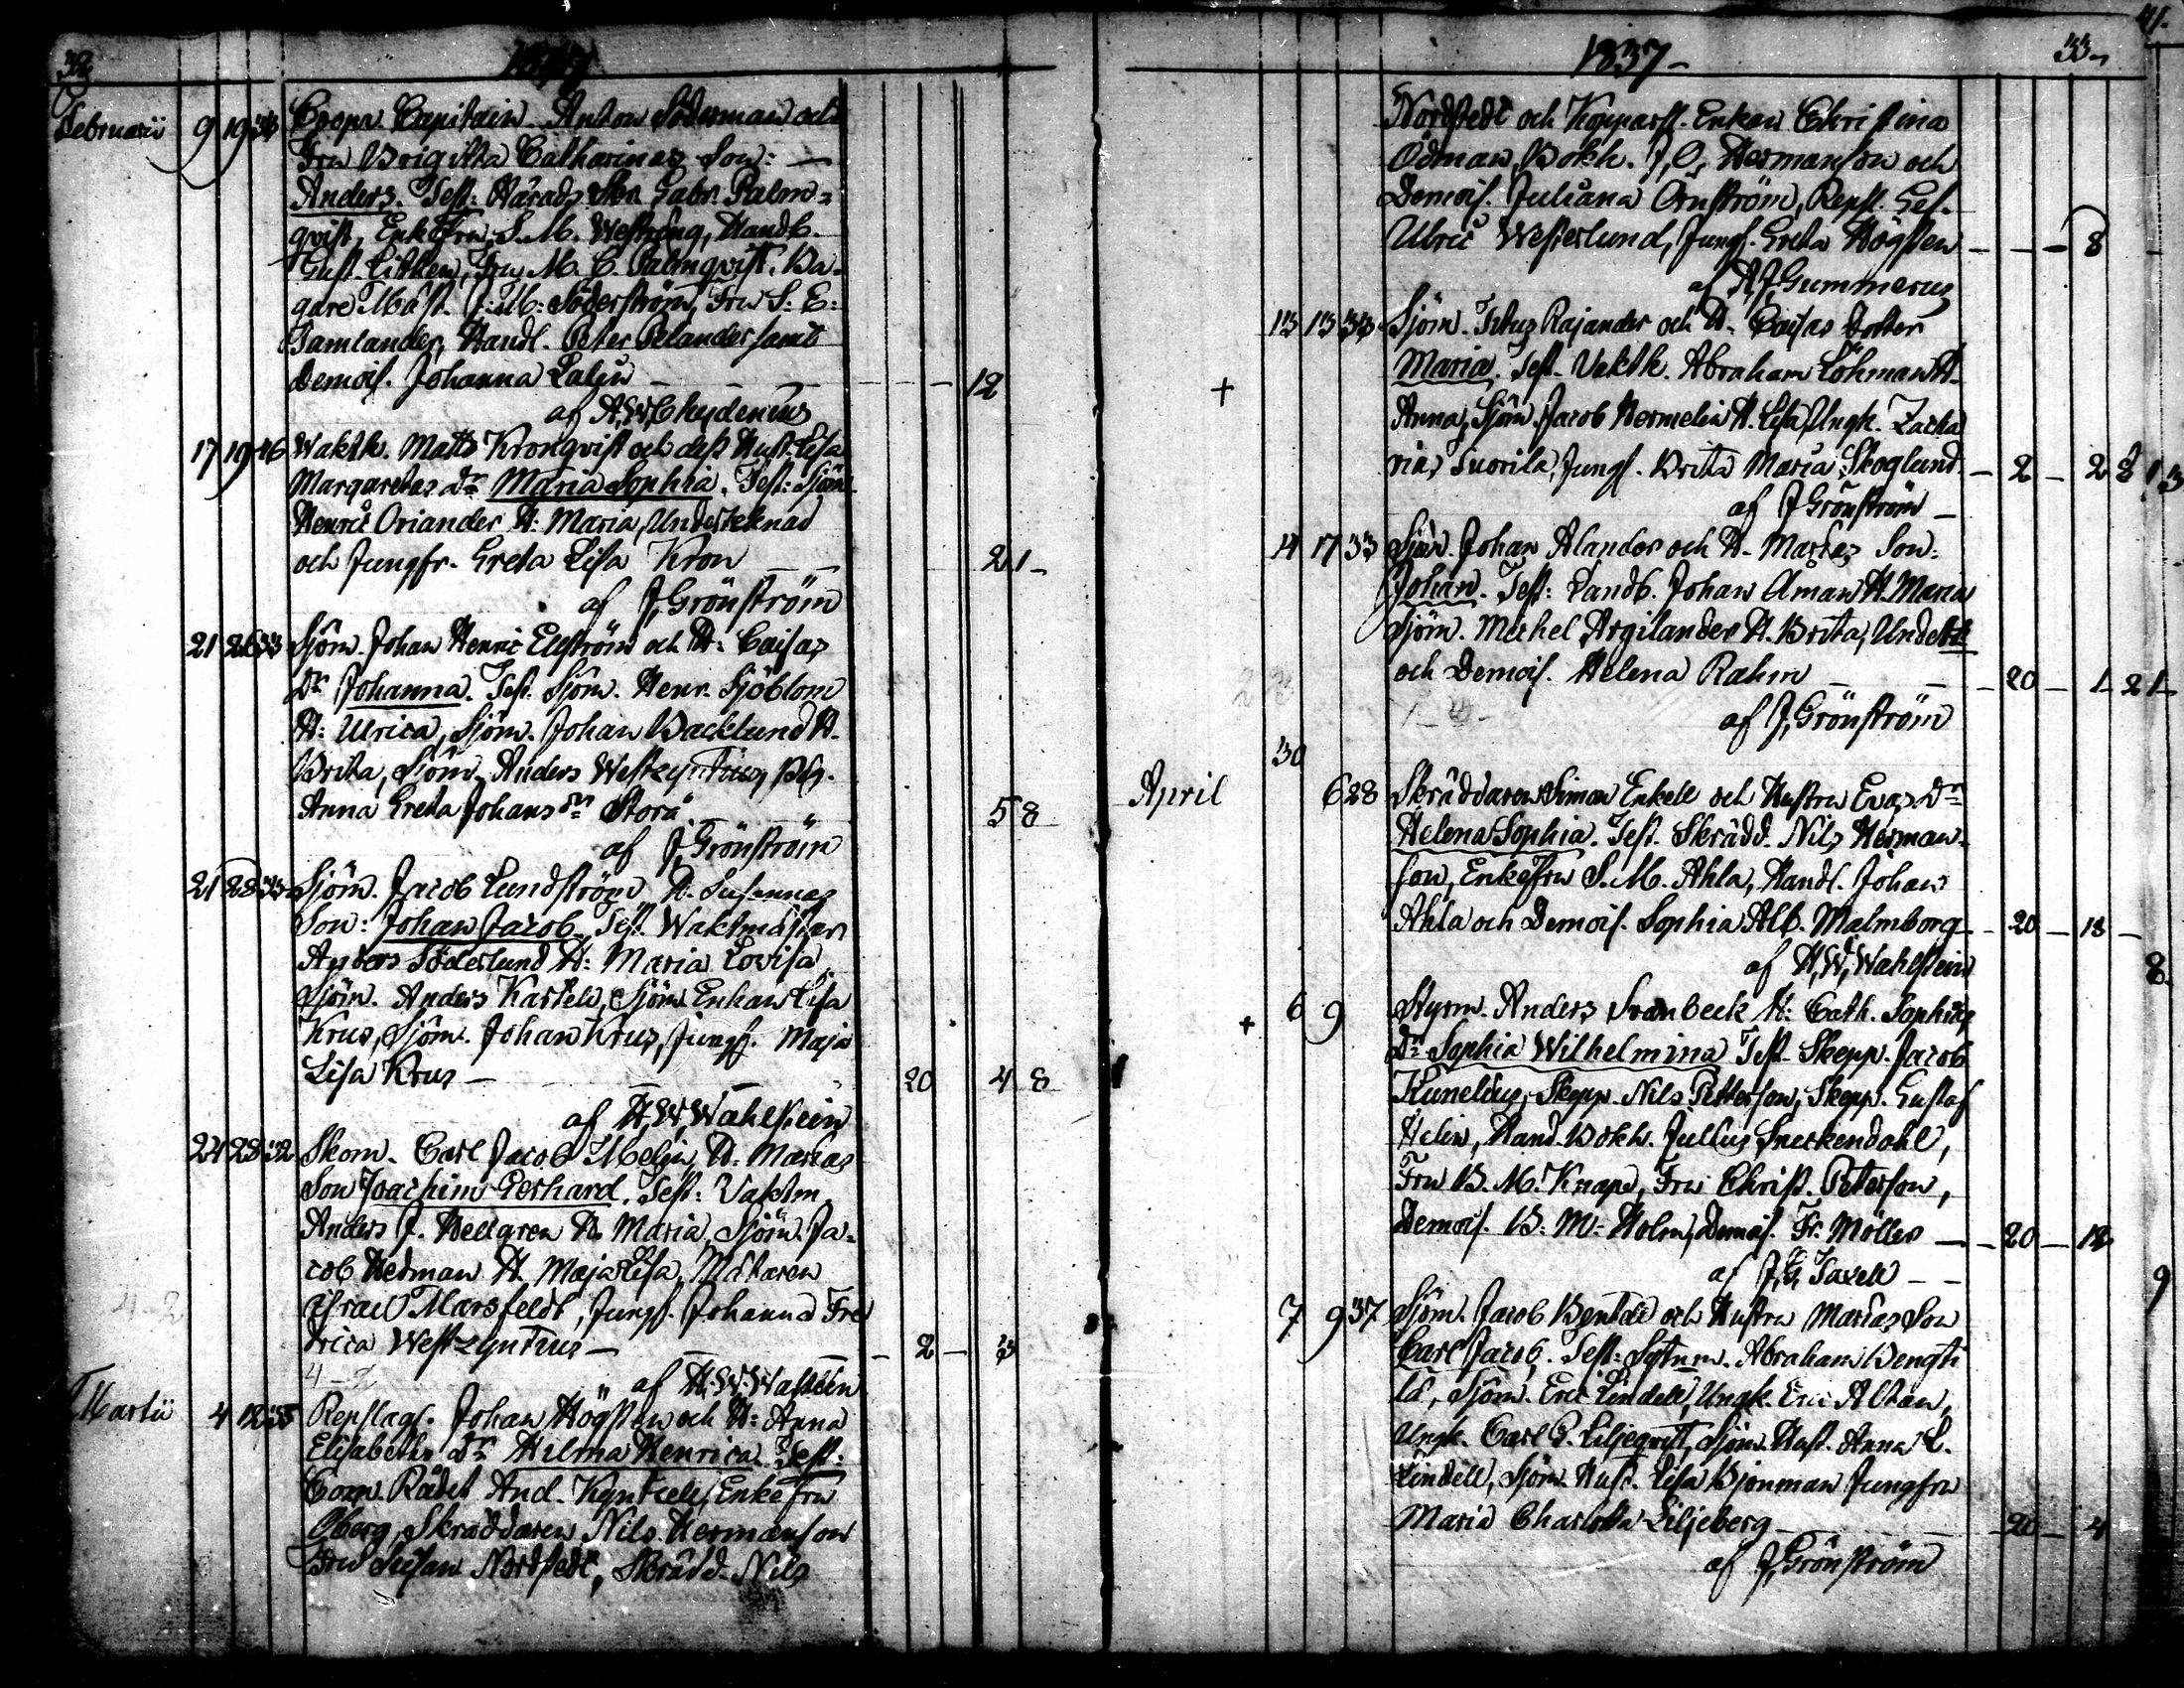 32 1837
Februarii 9 19 33 Coopv. Capitain Anton Söderman och
Fru Brigitta Catharinas Son: —
Anders. Test: Härads Skr. Gabr. Palm=
qvist, Enkefru S. M. Westring, Handl.
Gust. Lithen, Fru M. C. Palmqvist, Ba=
gare Mäst. J: M: Söderström, Fru S: E:
Jamlander, Handl. Peter Pelander samt
Demois. Johanna Lalin — — — 12
af A, W, Chydenius
17 19 46 Waktk. Matts Kronqvist och dess Hust. Lisa
Margaretas Dr Maria Sophia. Test: Sjöm.
Henric Oriander H: Maria, Underteknad
och Jungfr. Greta Lisa Kron — — 2 1 –
af J, Grönström
21 26 33 Sjöm. Johan Henric Elfström och H: Caisas
Dr Johanna. Test: Sjöm. Henr. Sjöblom
H: Ulrica, Sjöm. Johan Backlund H.
Brita, Sjöm. Anders Westzynthius, Pig.
Anna Greta Johansdr Storå — — 5 8
af J, Grönström
21 28 33 Sjöm. Jacob Lundström H. Susannas
Son: Johan Jacob. Test. Waktmästar
Anders Söderlund H: Maria Lovisa,
Sjöm. Anders Kastell, Sjöm. Enkan Lisa
Krus, Sjöm. Johan Krus, Jungf. Maja
Lisa Krus — — — 20 4 8
af H, W, Wahlstein
24 28 32 Skom. Carl Jacob Melin, H: Marias
Son Joachim Gerhard. Test: Vaktm.
Anders J. Hellgren H. Maria, Sjöm. Ja=
cob Hedman H. Maja Lisa, Mätaren
Israel Marsfeldt, Jungf. Johanna Fre
drica Westzynthius — — — 2 — 3
4 – 2
af H. W. Wahlstein
Martii 4 12 35 Repslag. Johan Högsten och H: Anna
Elisabeths Dr Hilma Henrica. Test:
Com. Rådet And. Kyntzell, Enkefru
Öberg, Skräddaren Nils Hermanson
Fru Susan Nordstedt, Skrädd. Nils
1837 – 33 –
41.
Nordstedt och Kopparsl. Enkan Christina
Ödman, Bokh. J, O, Hermanson och
Demois. Juliana Örnström, Repsl. Ges.
Ulric Westerlund, Jungf. Greta Högsten — — — 8
af A, J, Gummerus
13 13 33 Sjöm. Titus Rajander och H. Caisas Dotter
+ Maria. Test. Vaktk. Abraham Löhman H.
Anna, Sjöm. Jacob Hermelin H. Lisa, Ungk. Zacha
rias Tuorila, Jungf. Brita Maria Skoglund — 2 — 2 8
af J Grönström —
14 17 33 Sjöm. Johan Alander och H. Marias Son:
Johan. Test: Landb. Johan Åman H. Maria
Sjöm. Michel Argilander H. Brita, Undert.
och Demois. Helena Rahm — — 20 — 1 – 2 1 –
af J, Grönström
30
April 6 28 Skräddaren Simon Enkell och Hustru Evas Dr
Helena Sophia. Test. Skrädd. Nils Herman=
son, Enkefru S. M. Ahla, Handl. Johan
Ahla och Demois. Sophia Alb. Malmborg — 20 — 18 —
af H, W, Wahlstein
+ 6 9 Styrm. Anders Svanbeck H: Cath. Sophias
Dr Sophia Wilhelmina Test. Skepp. Jacob
Kunelius, Skepp. Nils Petterson, Skepp. Gustaf
Helin, Hand. Bokh. Julius Sneckendahl,
Fru B. M. Knape, Fru Christ. Peterson,
Demois. B: M: Holm, Demois. Fr. Möller — 20 — 12
af J, G, Taxell — —
7 9 37 Sjöm. Jacob Byndal och Hustru Marias Son
Carl Jacob. Test: Sytnm. Abraham Bengti
la, Sjöm. Eric Lindell, Ungk. Eric Altan,
Ungk. Carl G. Liljeqvist, Sjöm. Hust. Anna L.
Lindell, Sjöm. Hust. Lisa Björnman Jungfru
Maria Charlotta Liljeberg — — — 20 — 4
af J, Grönström